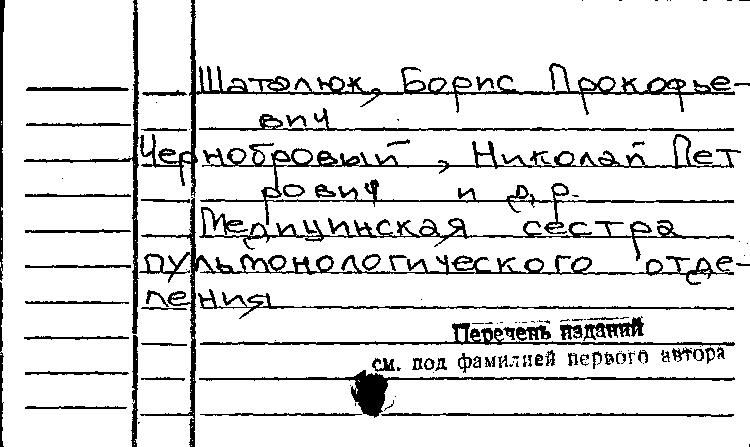 Шатолюк, Борис Прокофье-
вич
Чернобровый, Николай Пет
рович и др.
Медицинская сестра
пульмонологического отде-
ления
Перечень изданий
см. под фамилией первого автора